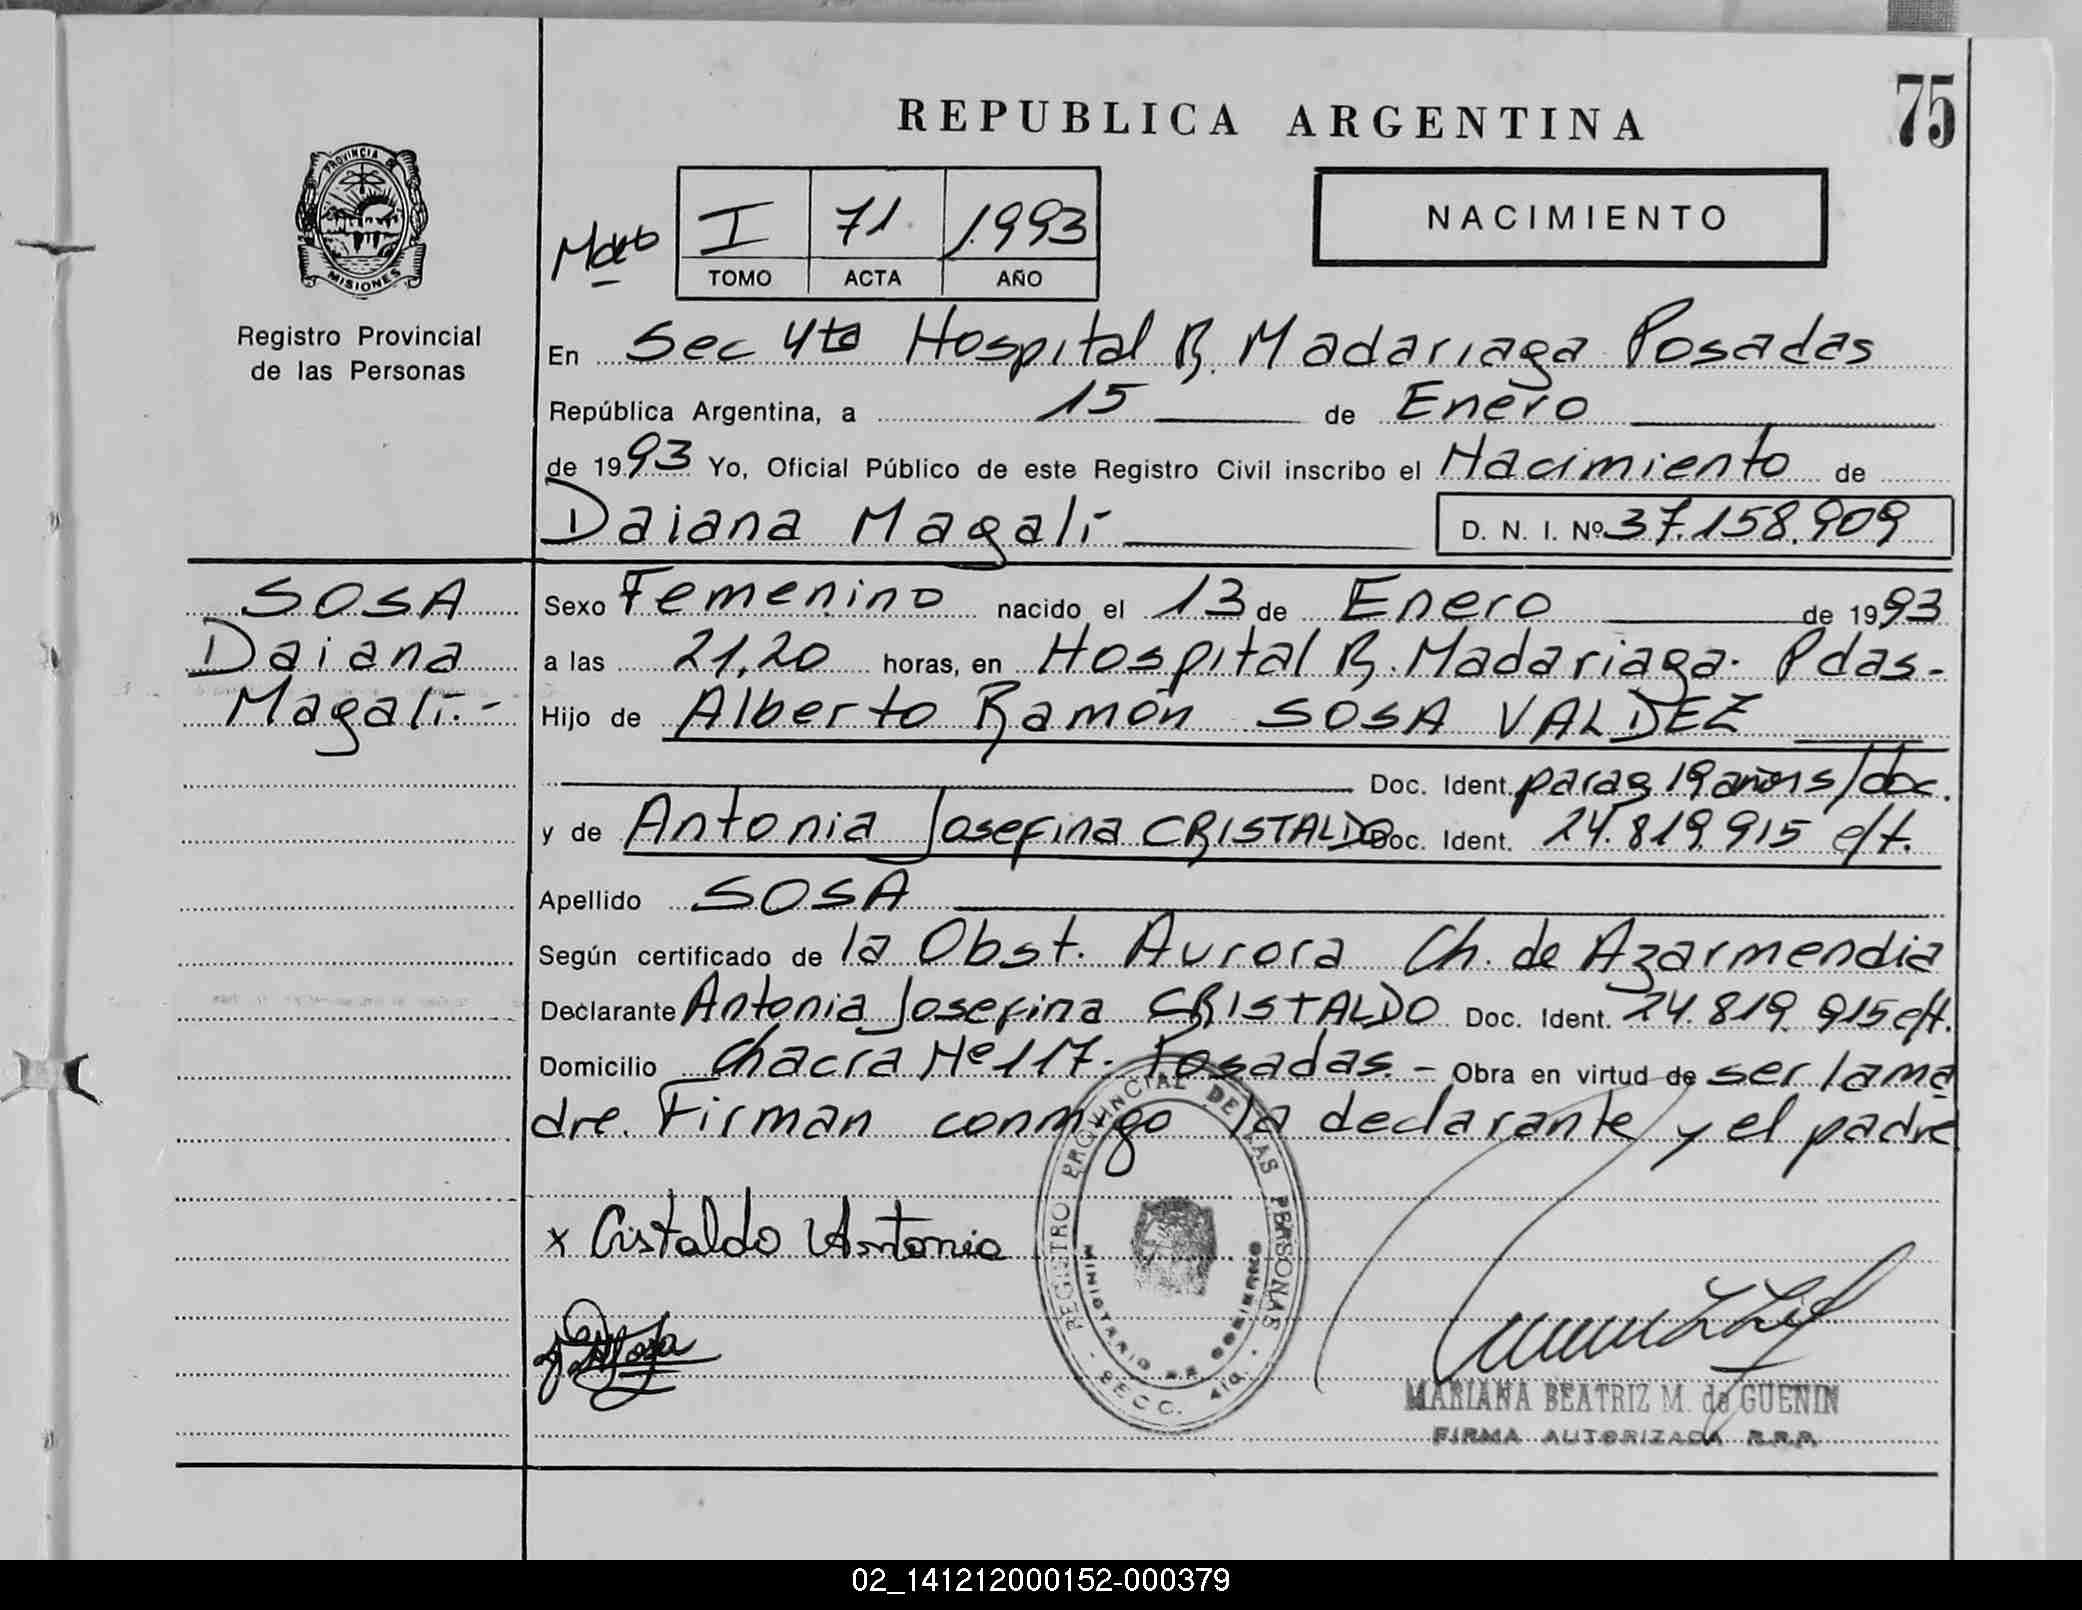 75
REPUBLICA ARGENTINA
PROVINCIA DE
MISIONES
Registro Provincial
de las Personas
I 71 1993
TOMO ACTA AÑO
NACIMIENTO
En Sec 4ta Hospital R. Madariaga Posadas
República Argentina, a 15 de Enero
de 1993 Yo, Oficial Público de este Registro Civil inscribo el Nacimiento de
Daiana Magalí D. N. I. Nº 37.158.909
SOSA
Daiana
Magalí.-
Sexo Femenino nacido el 13 de Enero de 1993
a las 21,20 horas, en Hospital R. Madariaga. Pdas-
Hijo de Alberto Ramón SOSA VALDEZ
Doc. Ident. parag 19 años s/doc.
y de Antonia Josefina CRISTALDO Doc. Ident. 24.819.915 e/t.
Apellido SOSA
Según certificado de la Obst. Aurora Ch. de Azarmendia
Declarante Antonia Josefina CRISTALDO Doc. Ident. 24.819.915 e/t.
Domicilio Chacra Nº 117. Posadas.- Obra en virtud de ser la ma
dre. Firman conmigo la declarante y el padre
x Cristaldo Antonia
REGISTRO PROVINCIAL DE LAS PERSONAS
MINISTERIO DE GOBIERNO
- SECC. 4ta. -
MARIANA BEATRIZ M. de GUENIN
FIRMA AUTORIZADA R.P.P.
02_141212000152-000379